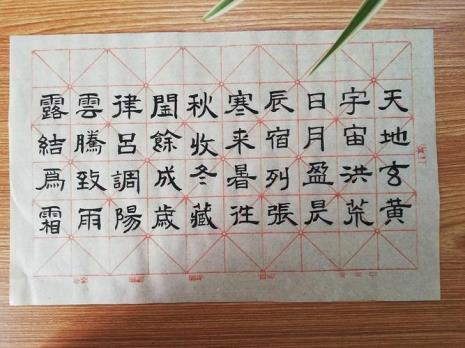 天地玄黄
宇宙洪荒
日月盈昃
辰宿列張
寒来暑往
秋收冬藏
閏餘成歲
律呂調陽
雲騰致雨
露結爲霜